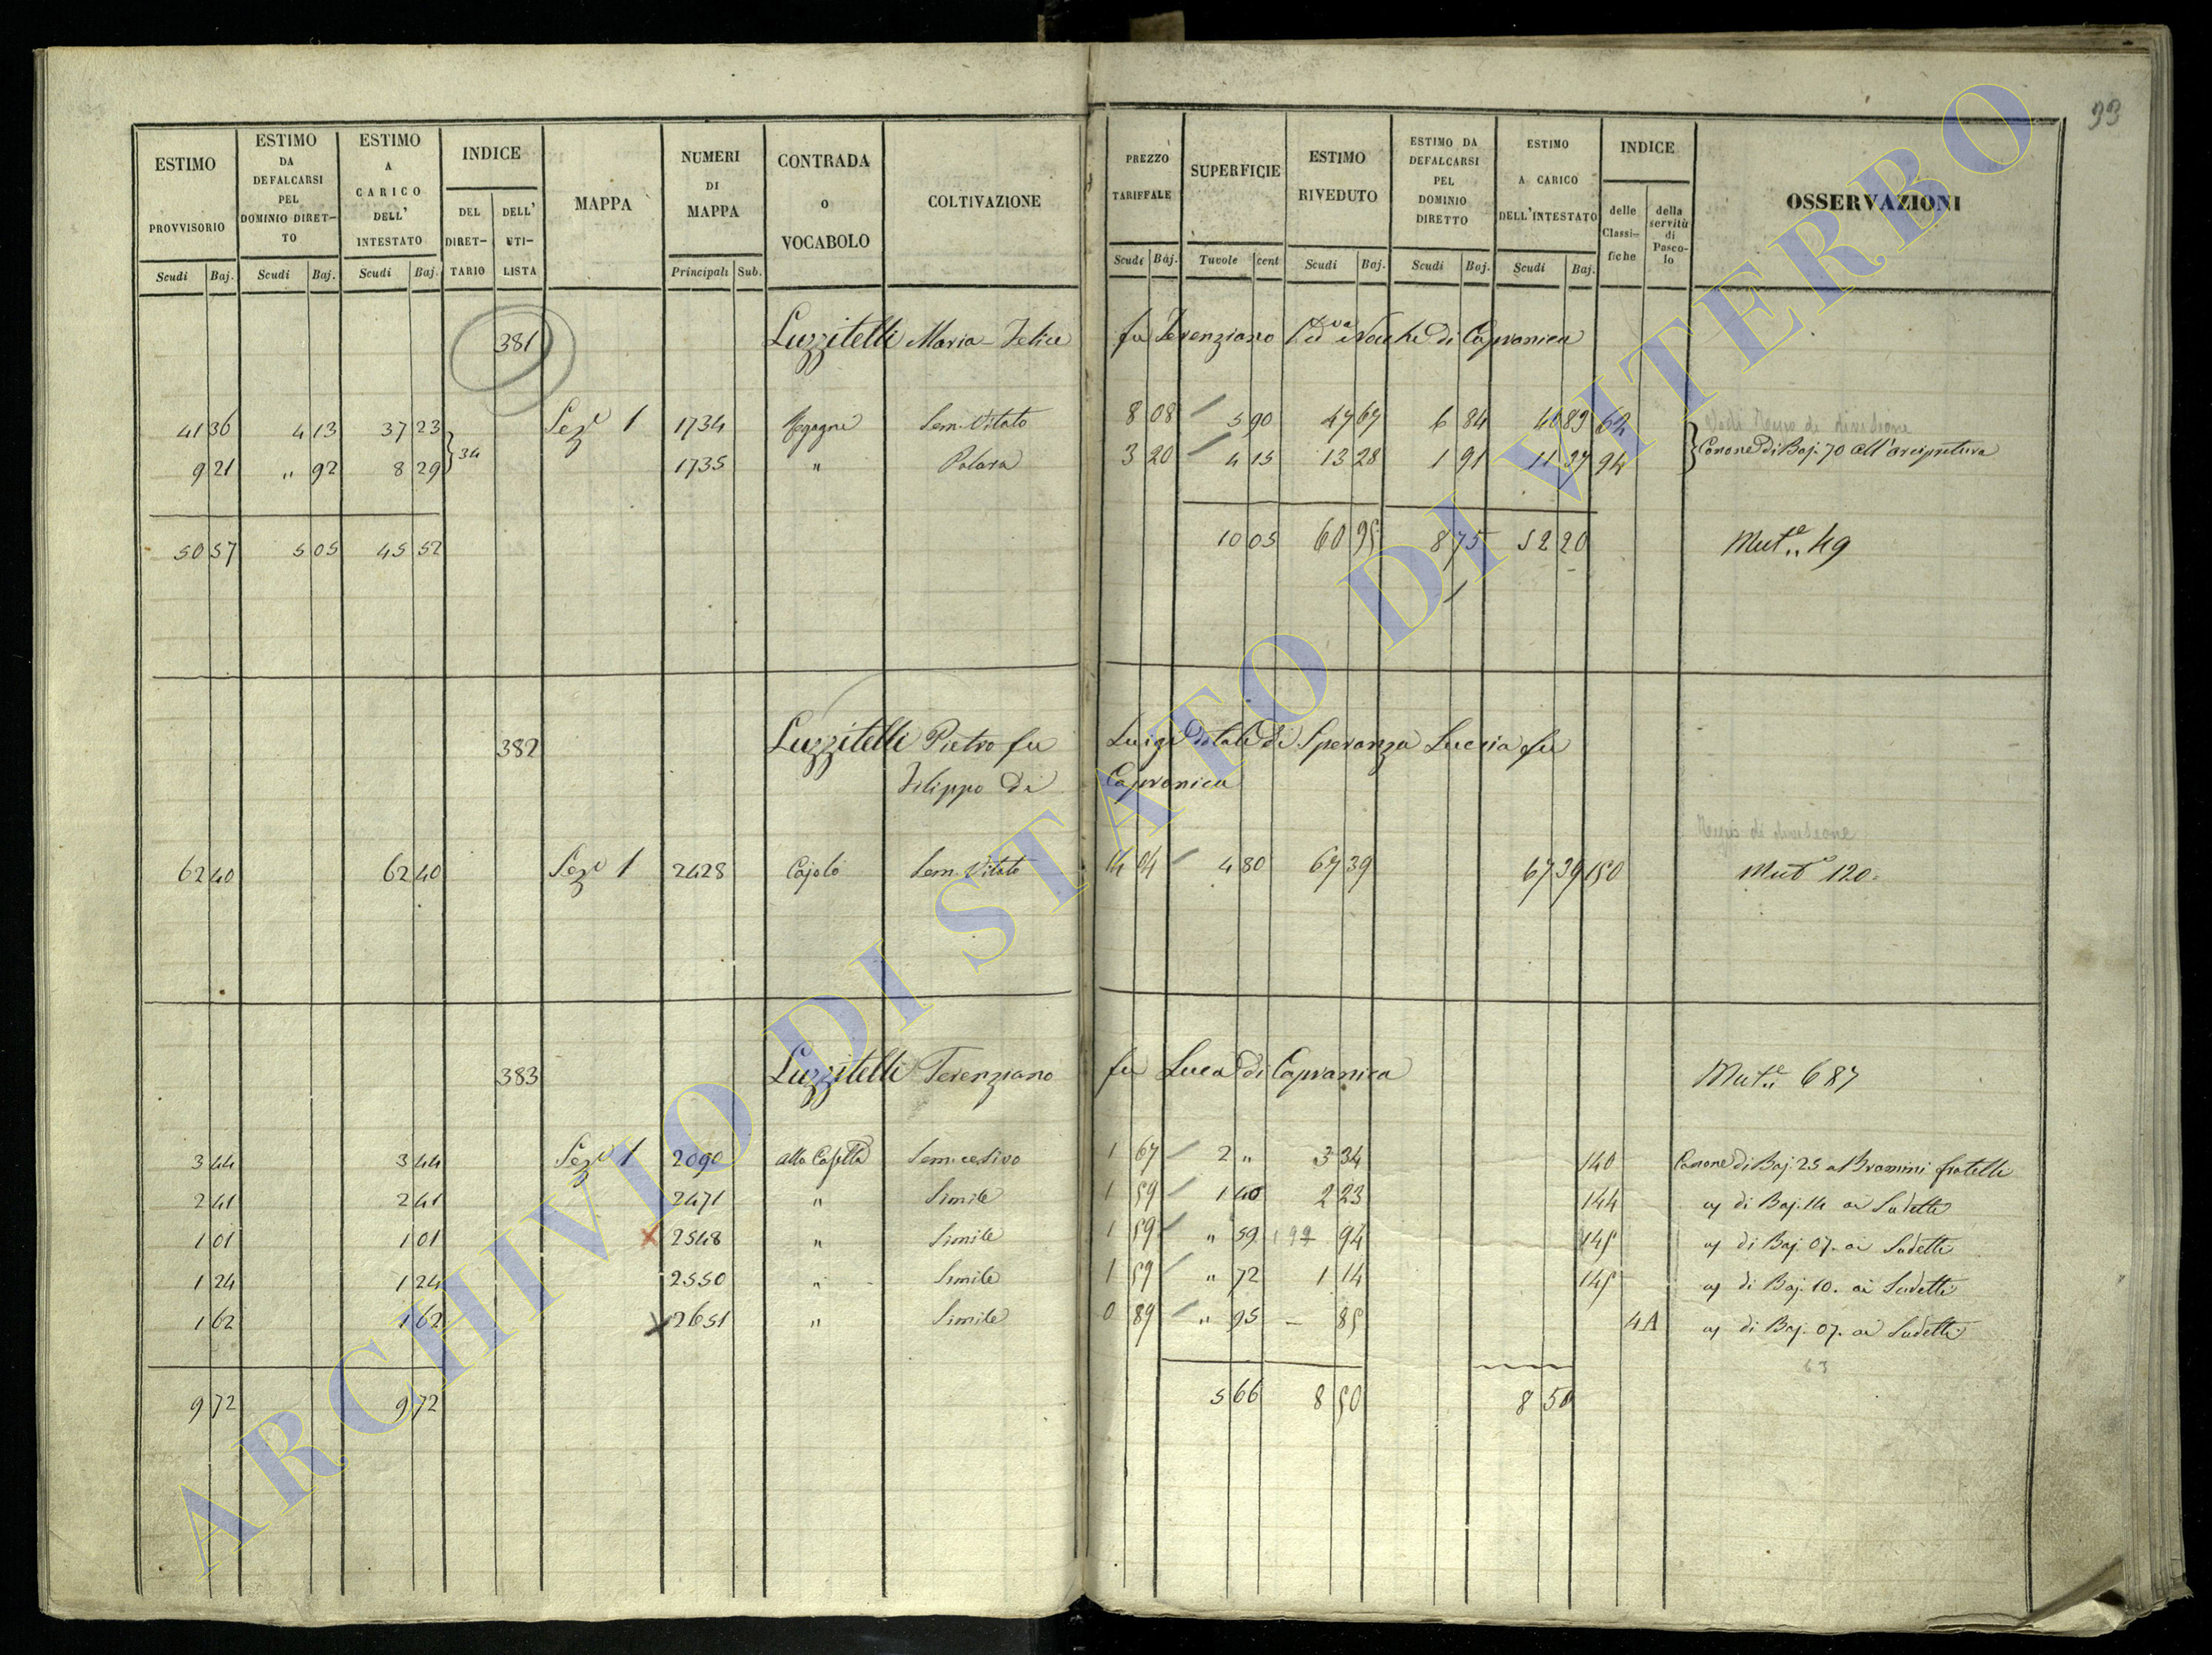 93
ESTIMO PROVVISORIO Scudi Baj.
ESTIMO DA DEFALCARSI PEL DOMINIO DIRETTO Scudi Baj.
ESTIMO A CARICO DELL' INTESTATO Scudi Baj.
INDICE DEL DIRET-TARIO DELL' UTI-LISTA
MAPPA
NUMERI DI MAPPA Principali Sub.
CONTRADA o VOCABOLO
COLTIVAZIONE
PREZZO TARIFFALE Scudi Baj.
SUPERFICIE Tavole cent
ESTIMO RIVEDUTO Scudi Baj.
ESTIMO DA DEFALCARSI PEL DOMINIO DIRETTO Scudi Baj.
ESTIMO A CARICO DELL'INTESTATO Scudi Baj.
INDICE delle Classi-fiche della servitù di Pasco-lo
OSSERVAZIONI
381 Luzzitelli Maria Felice fu Terenziano di Capranica
41 36 4 13 37 23 34 Sez.e 1 1734 Sem. Vitato 8 08 5 90 47 67 6 84 40 83 62
9 21 " 92 8 29 1735 " 3 20 4 15 13 28 1 91 11 37 94 Canone di Baj. 70 all'arcipretura
50 57 5 05 45 52 10 05 60 95 8 75 52 20 Mut.e 49
382 Luzzitelli Pietro fu Luigi dotale di Speranza Luccia fu
Filippo di Capranica
di divisione
62 40 62 40 Sez.e 1 2428 Cajolo Sem. Vitato 14 04 4 80 67 39 67 39 150 Mut.e 120
383 Luzzitelli Terenziano fu Luca di Capranica Mut.e 687
3 44 3 44 Sez.e 1 2090 alla Casetta 1 67 2 " 3 34 140 Canone di Baj. 25 a Brannini fratelli
2 41 2 41 2471 " Simile 1 59 1 40 2 23 144 di Baj. 14 ai Sudetti
1 01 1 01 x 2548 " Simile 1 59 " 59 94 145 di Baj. 07 ai Sudetti
1 24 1 24 2550 " Simile 1 59 " 72 1 14 145 di Baj. 10. ai Sudetti
1 62 1 62 x 2651 " Simile 0 89 " 95 – 85 4A di Baj. 07. ai Sudetti
63
9 72 9 72 5 66 8 50 8 50
ARCHIVIO DI STATO DI VITERBO